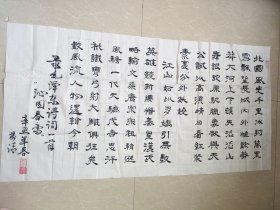 北國風光千里冰封萬里
雪飄望長城內外惟餘莽
莽大河上下頓失滔滔山
舞銀蛇原馳蠟象欲與天
公試比高須晴日看紅裝
素裹分外妖嬈
江山如此多嬌引無數
英雄競折腰惜秦皇漢武
略輸文采唐宗宋祖稍遜
風騷一代天驕成吉思汗
祇識彎弓射大雕俱往矣
數風流人物還看今朝
毛澤東詩詞一首
沁园春雪
年春